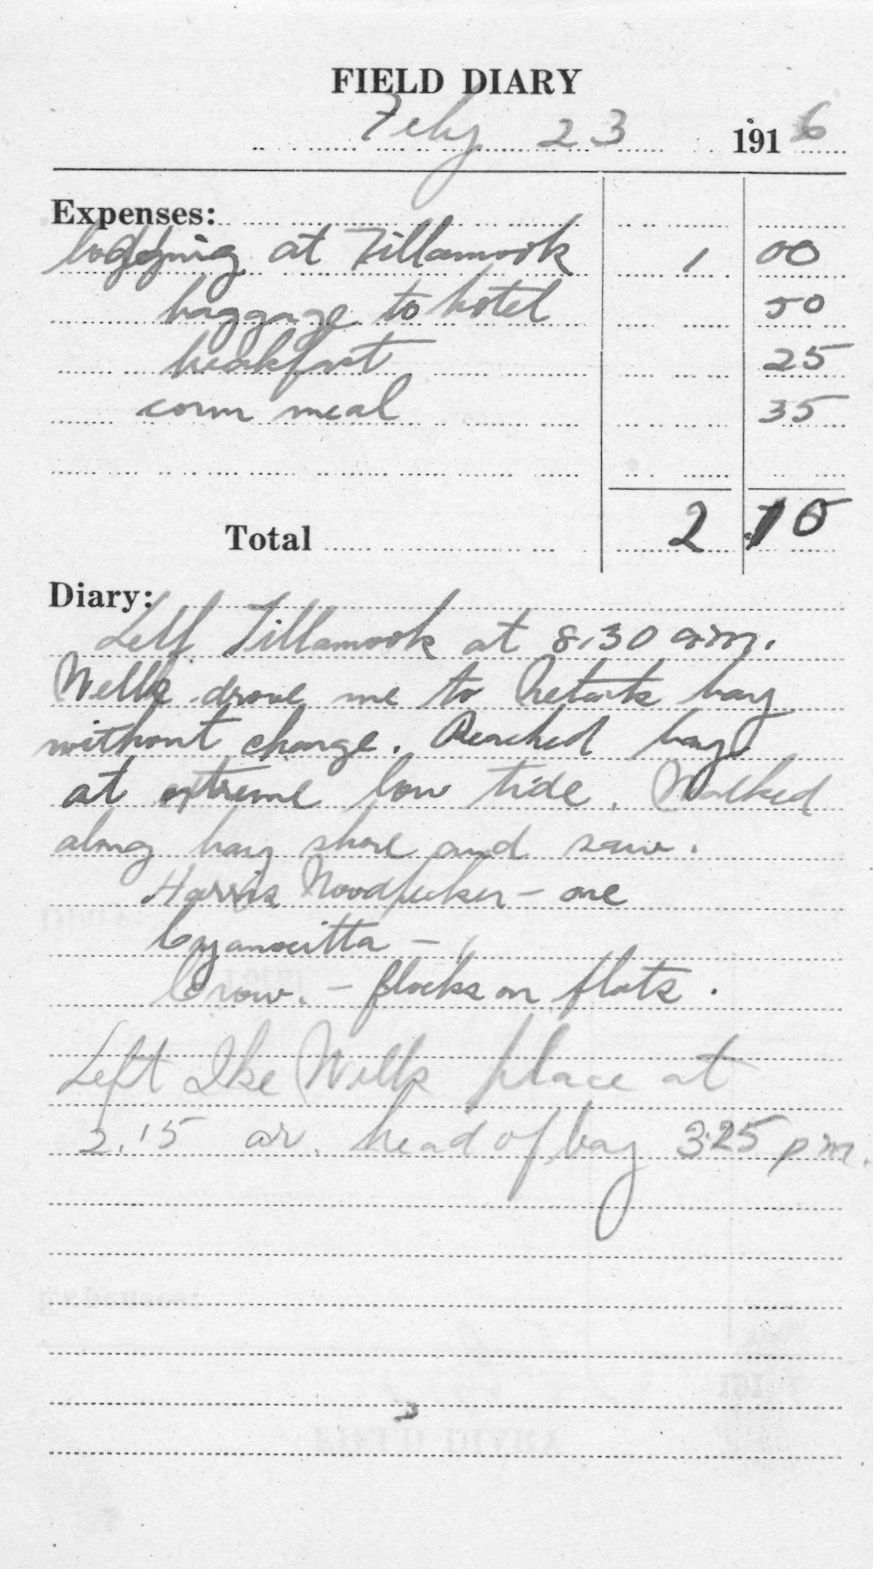 FIELD DIARY
Feby 23 1916
Expenses:
lodging at Tillamook 1 00
baggage to hotel 50
breakfast 25
corn meal 35
Total 2 10
Diary:
Left Tillamook at 8.30 a.m.
Wells drove me to Netarts bay
without charge. Reached bay
at extreme low tide. Walked
along bay shore and saw.
Harris Woodpecker - one
Cyanocitta - "
Crow. - flocks on flats.
Left Ike Wells place at
2.15 ar. head of bay 3.25 p m.